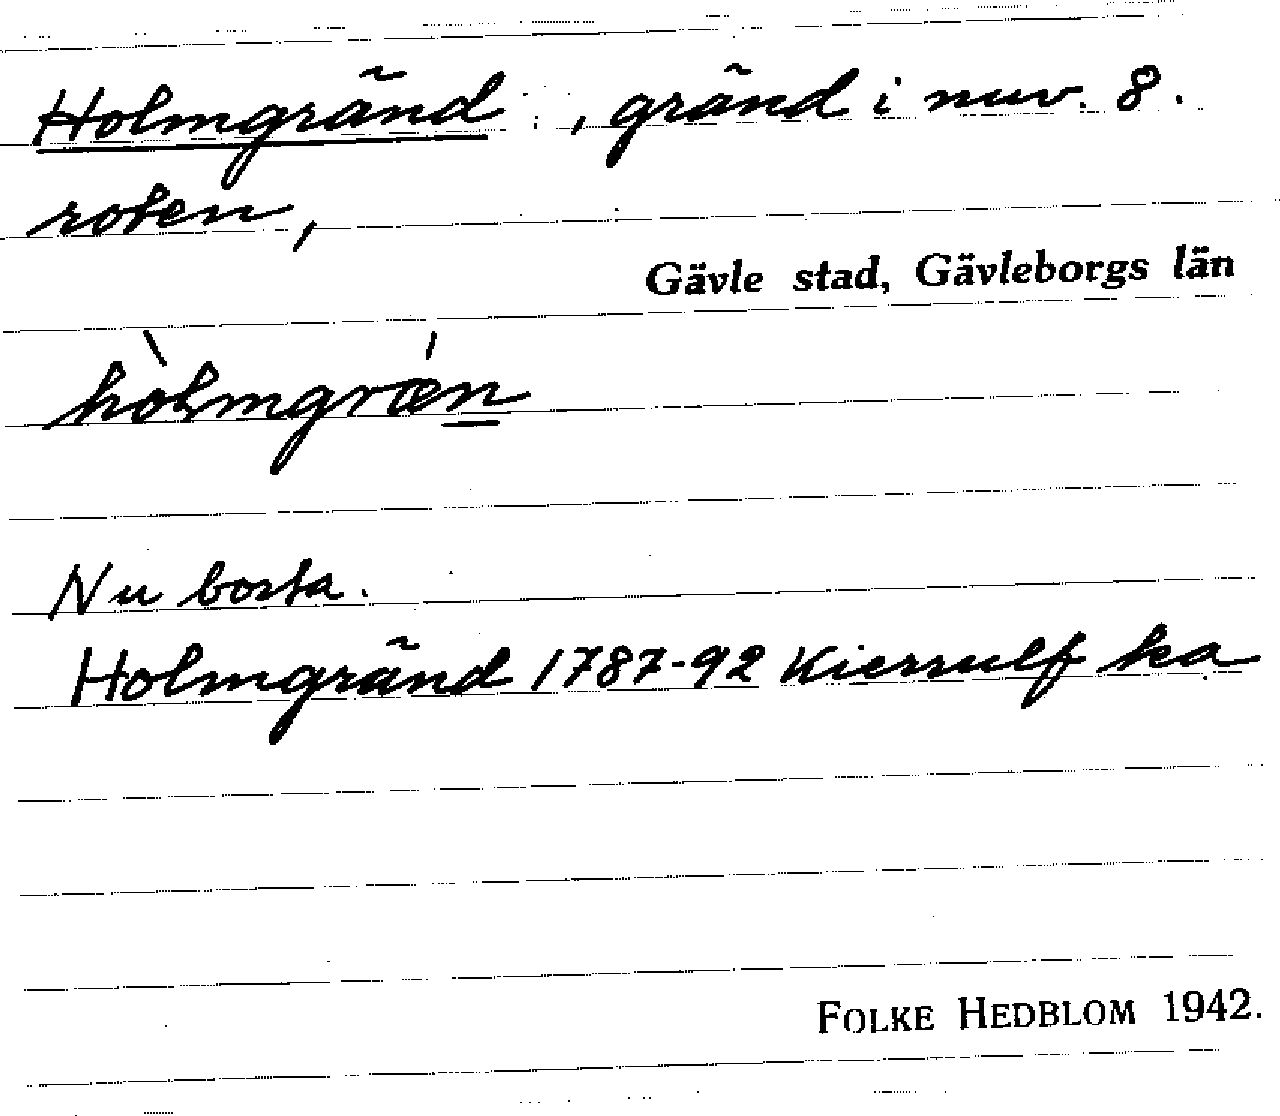 Holmgränd , gränd i nuv. 8.
roten,
Gävle stad, Gävleborgs län
hòlmgrǽn
Nu borta.
Holmgränd 1787-92 Kierrulf ka
FOLKE HEDBLOM 1942.